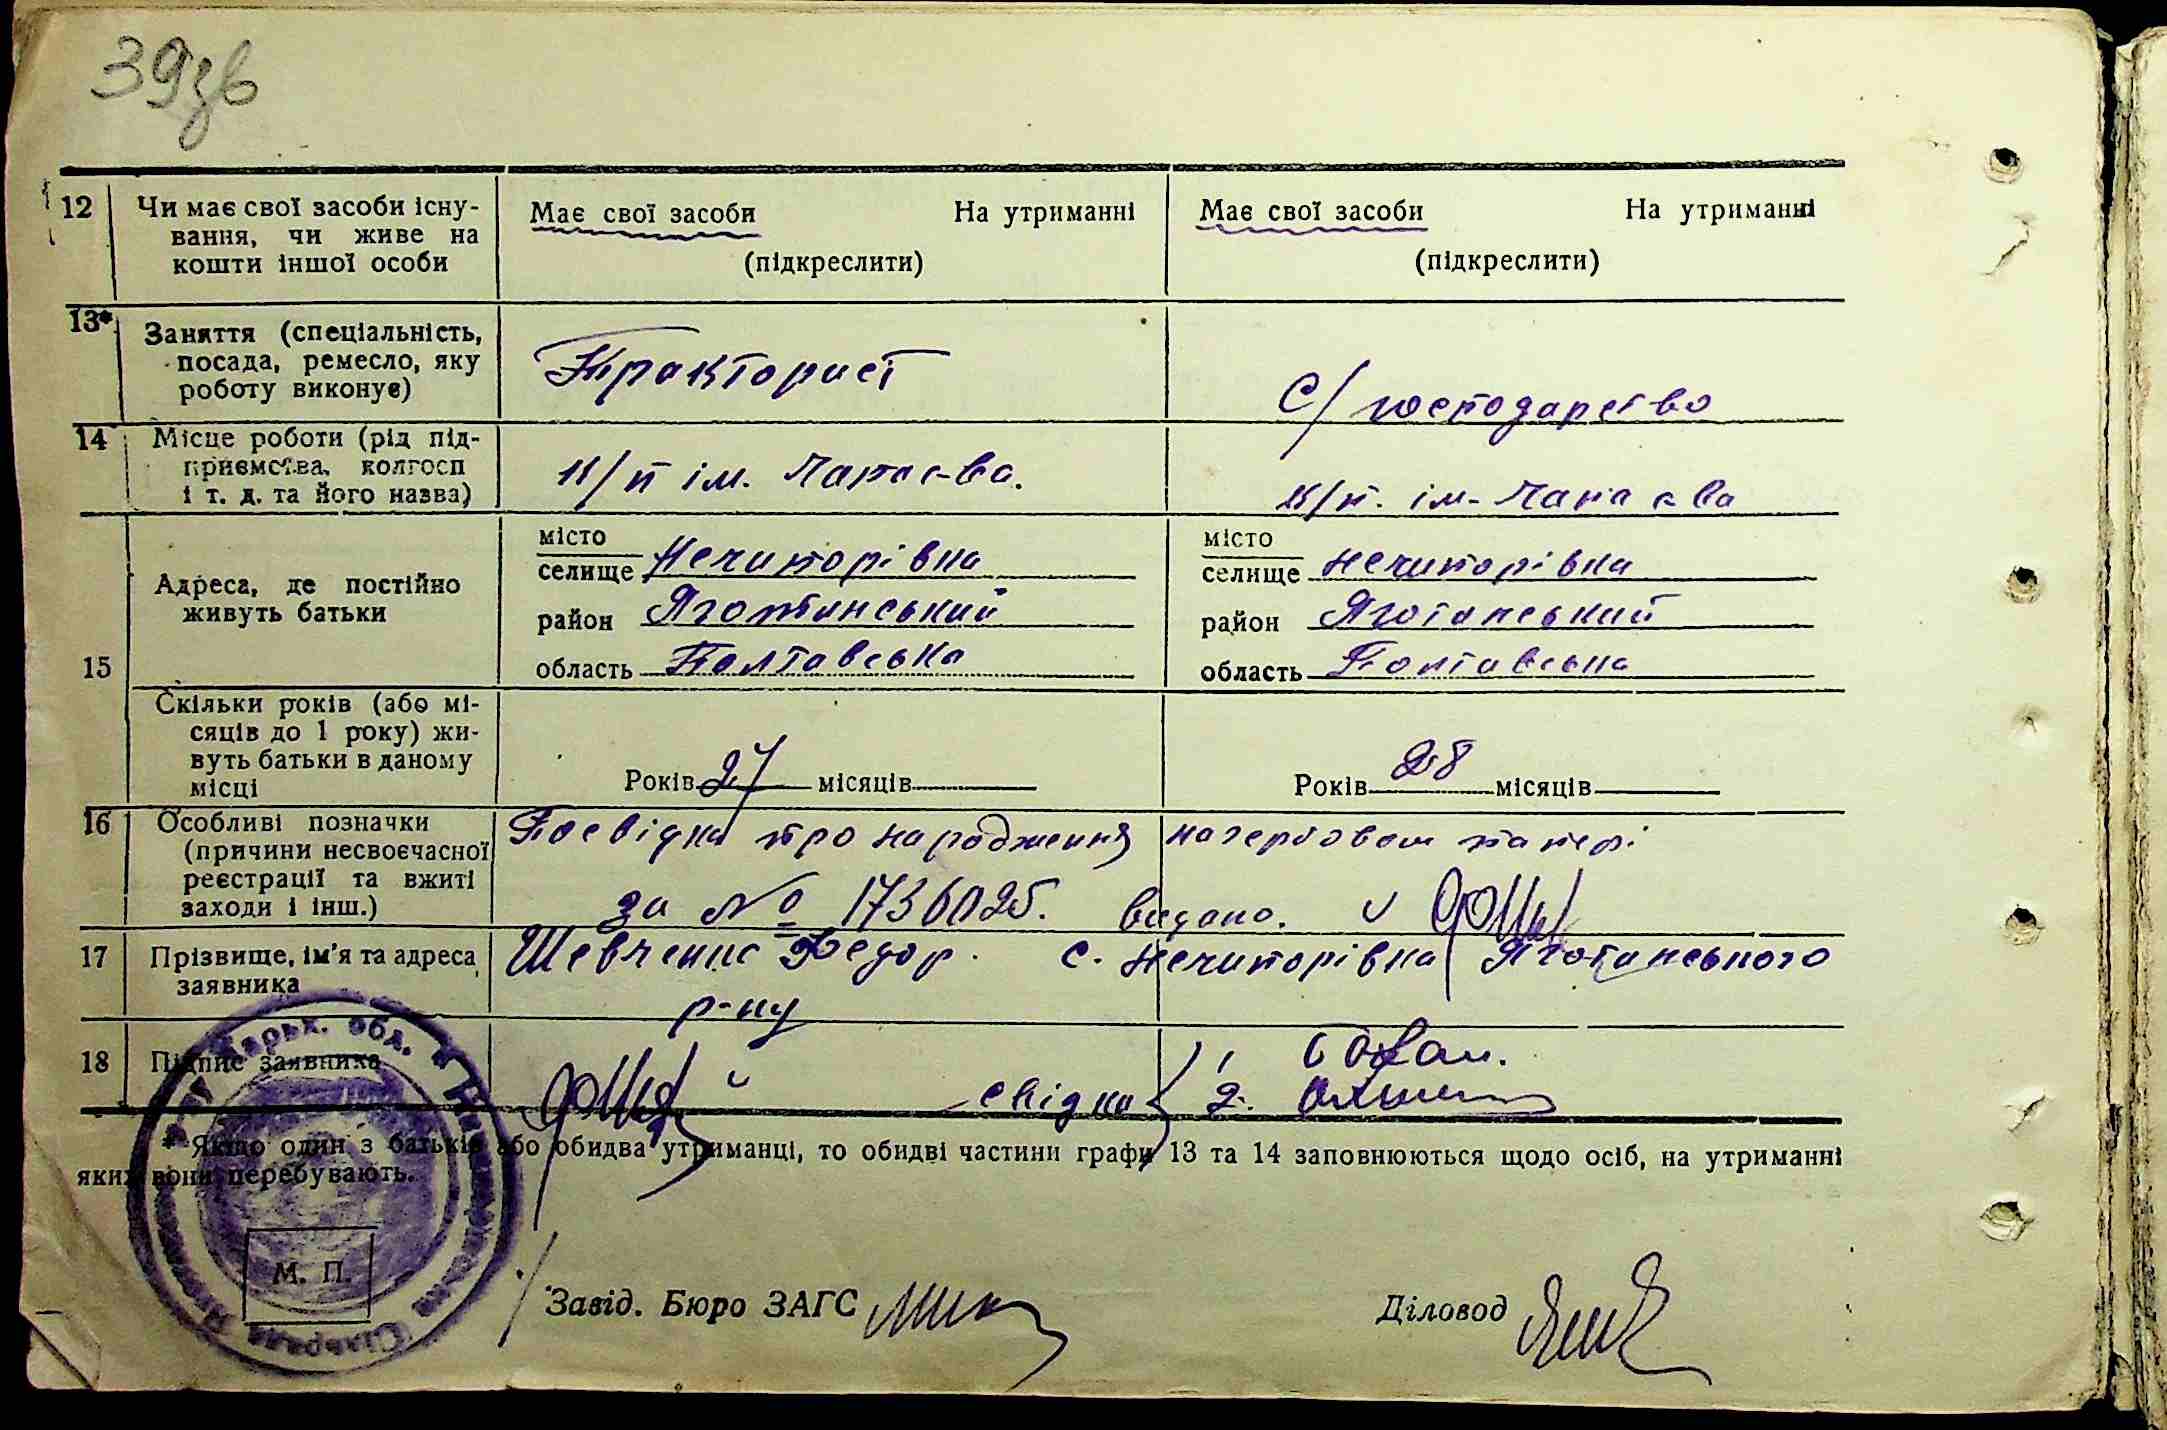 39зв
12 Чи має свої засоби існу-
вання, чи живе на
кошти іншої особи
Має свої засоби На утриманні
(підкреслити)
Має свої засоби На утриманні
(підкреслити)
13* Заняття (спеціальність,
посада, ремесло, яку
роботу виконує)
Тракторист
С/господарство
14 Місце роботи (рід під-
приємства, колгосп
і т. д. та його назва)
к/п ім. Чапаєва.
к/п. ім. Чапаєва
15 Адреса, де постійно
живуть батьки
місто
селище Нечипорівка
район Яготинський
область Полтавська
місто
селище Нечипорівка
район Яготинський
область Полтавська
Скільки років (або мі-
сяців до 1 року) жи-
вуть батьки в даному
місці
Років 27 місяців
Років 28 місяців
16 Особливі позначки
(причини несвоєчасної
реєстрації та вжиті
заходи і інш.)
Посвідка про народження на гербовом папері
за № 1736025. видано.
17 Прізвище, ім'я та адреса
заявника
Шевченко Федор. с. Нечипорівка Яготинського
р-ну
18 Підпис заявника
свідки
1.
2.
* Якщо один з батьків або обидва утриманці, то обидві частини графи 13 та 14 заповнюються щодо осіб, на утриманні
яких вони перебувають.
М. П.
Завід. Бюро ЗАГС
Діловод